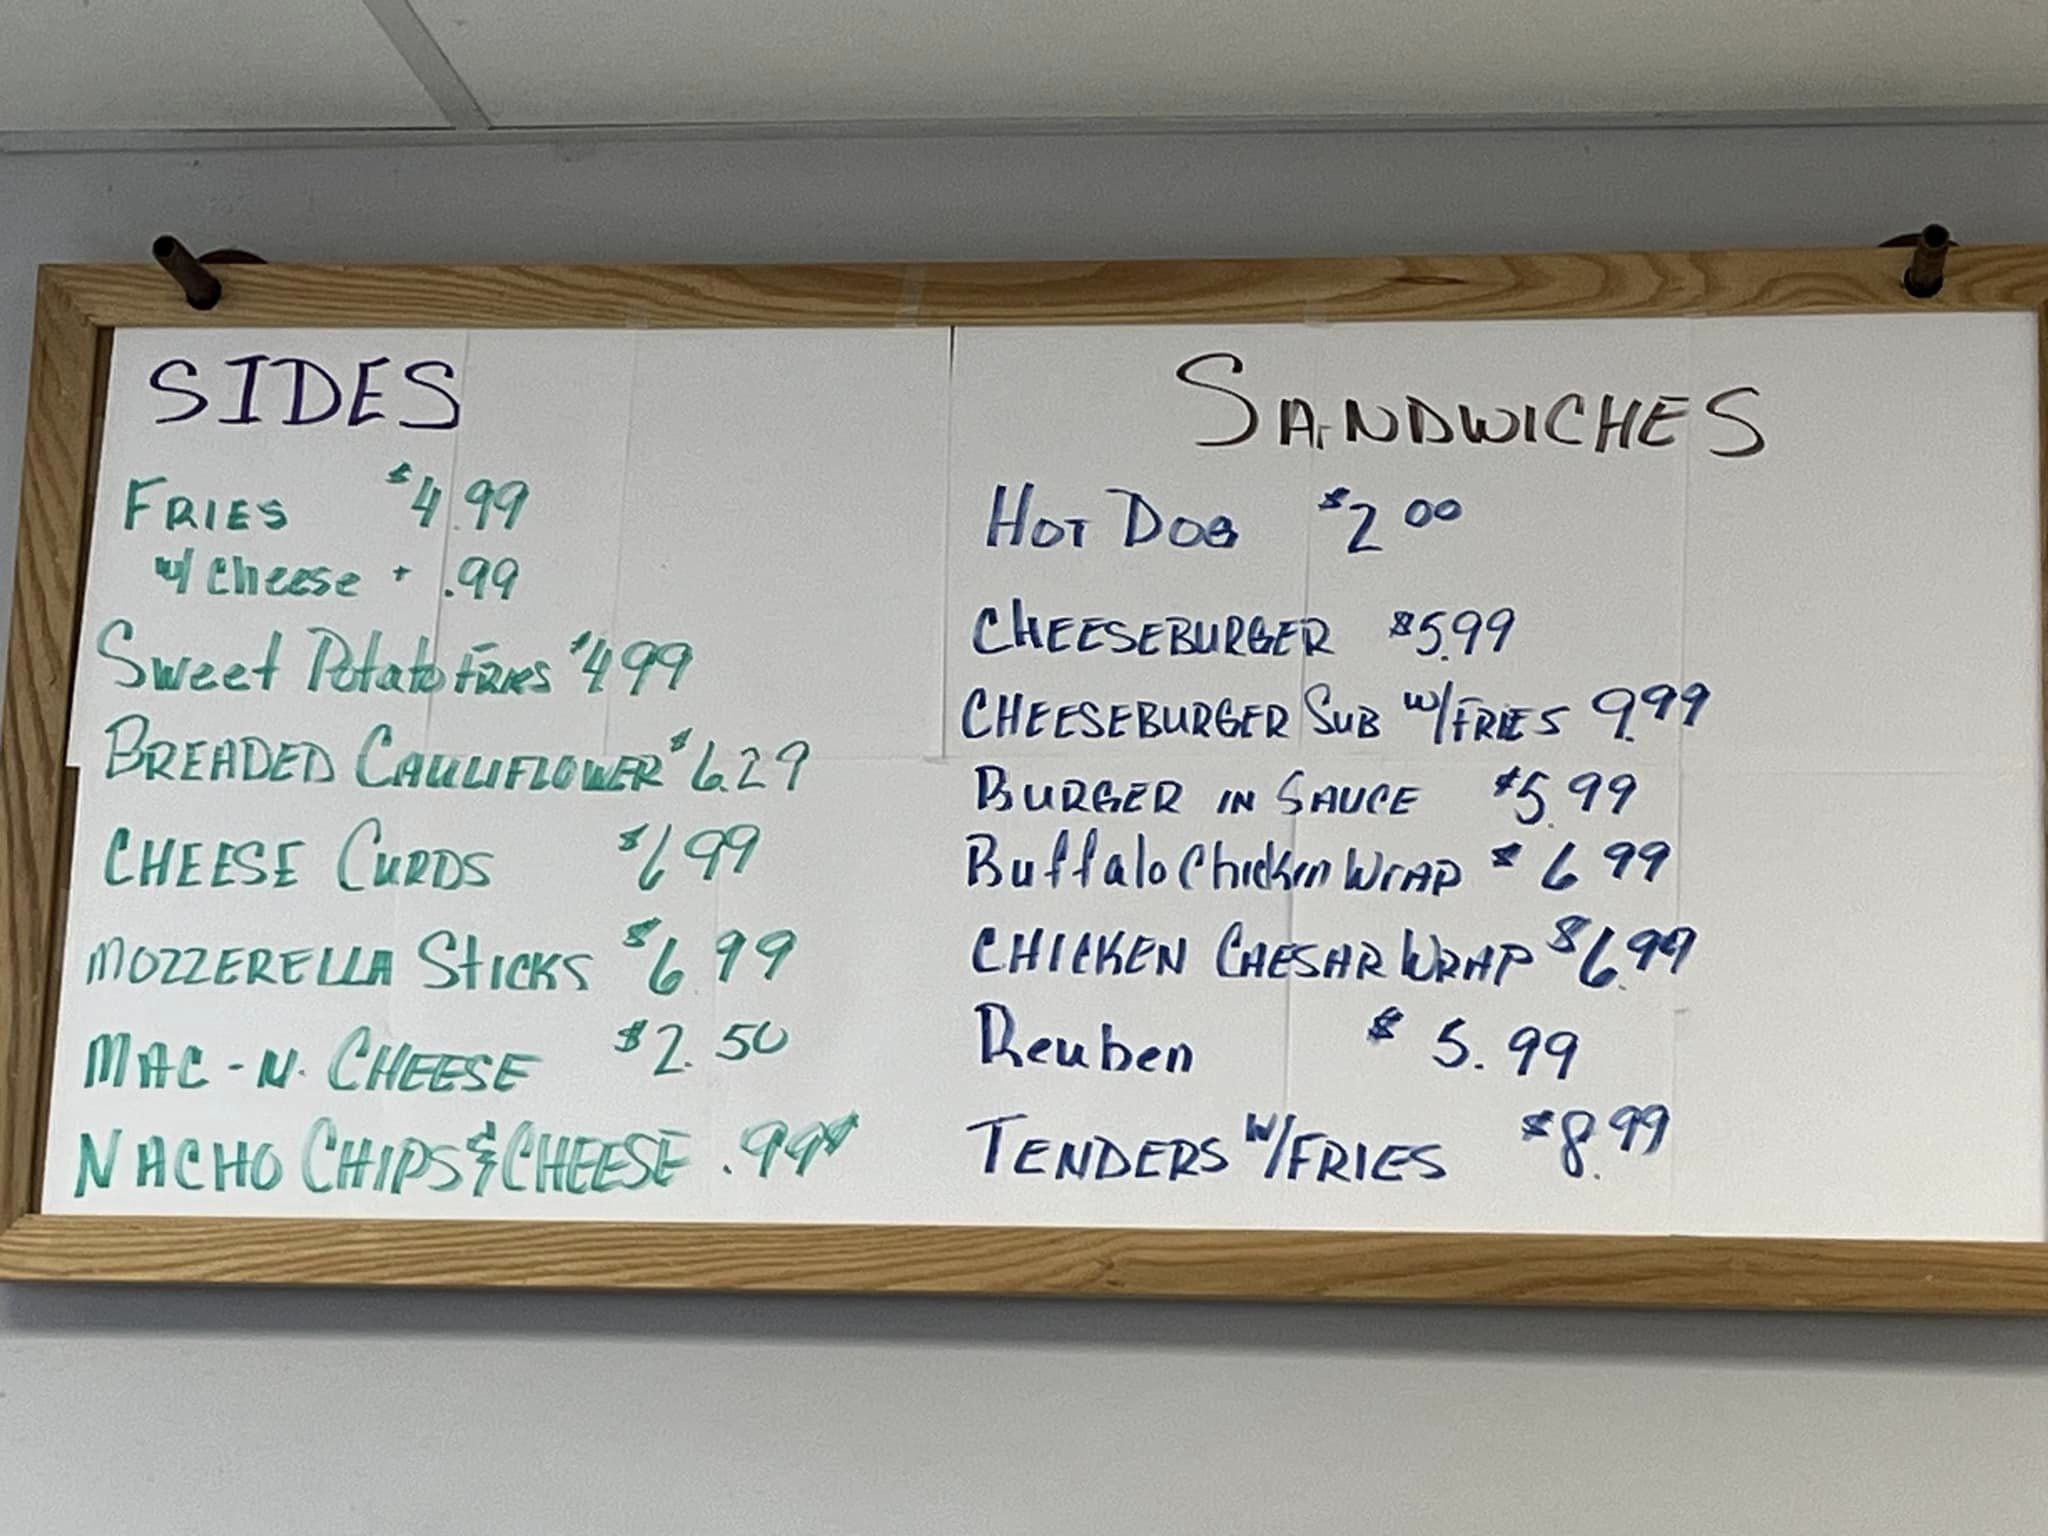 SIDES
FRIES $4.99
w/ Cheese + .99
Sweet Potato FRIES $4.99
BREADED CAULIFLOWER $6.29
CHEESE CURDS $6.99
MOZZERELLA STICKS $6.99
MAC-N. CHEESE $2.50
NACHO CHIPS & CHEESE .99¢
SANDWICHES
HOT DOG $2.00
CHEESEBURGER $5.99
CHEESEBURGER SUB w/FRIES 9.99
BURGER IN SAUCE $5.99
Buffalo Chicken WRAP $6.99
CHICKEN CAESAR WRAP $6.99
Reuben $5.99
TENDERS w/FRIES $8.99